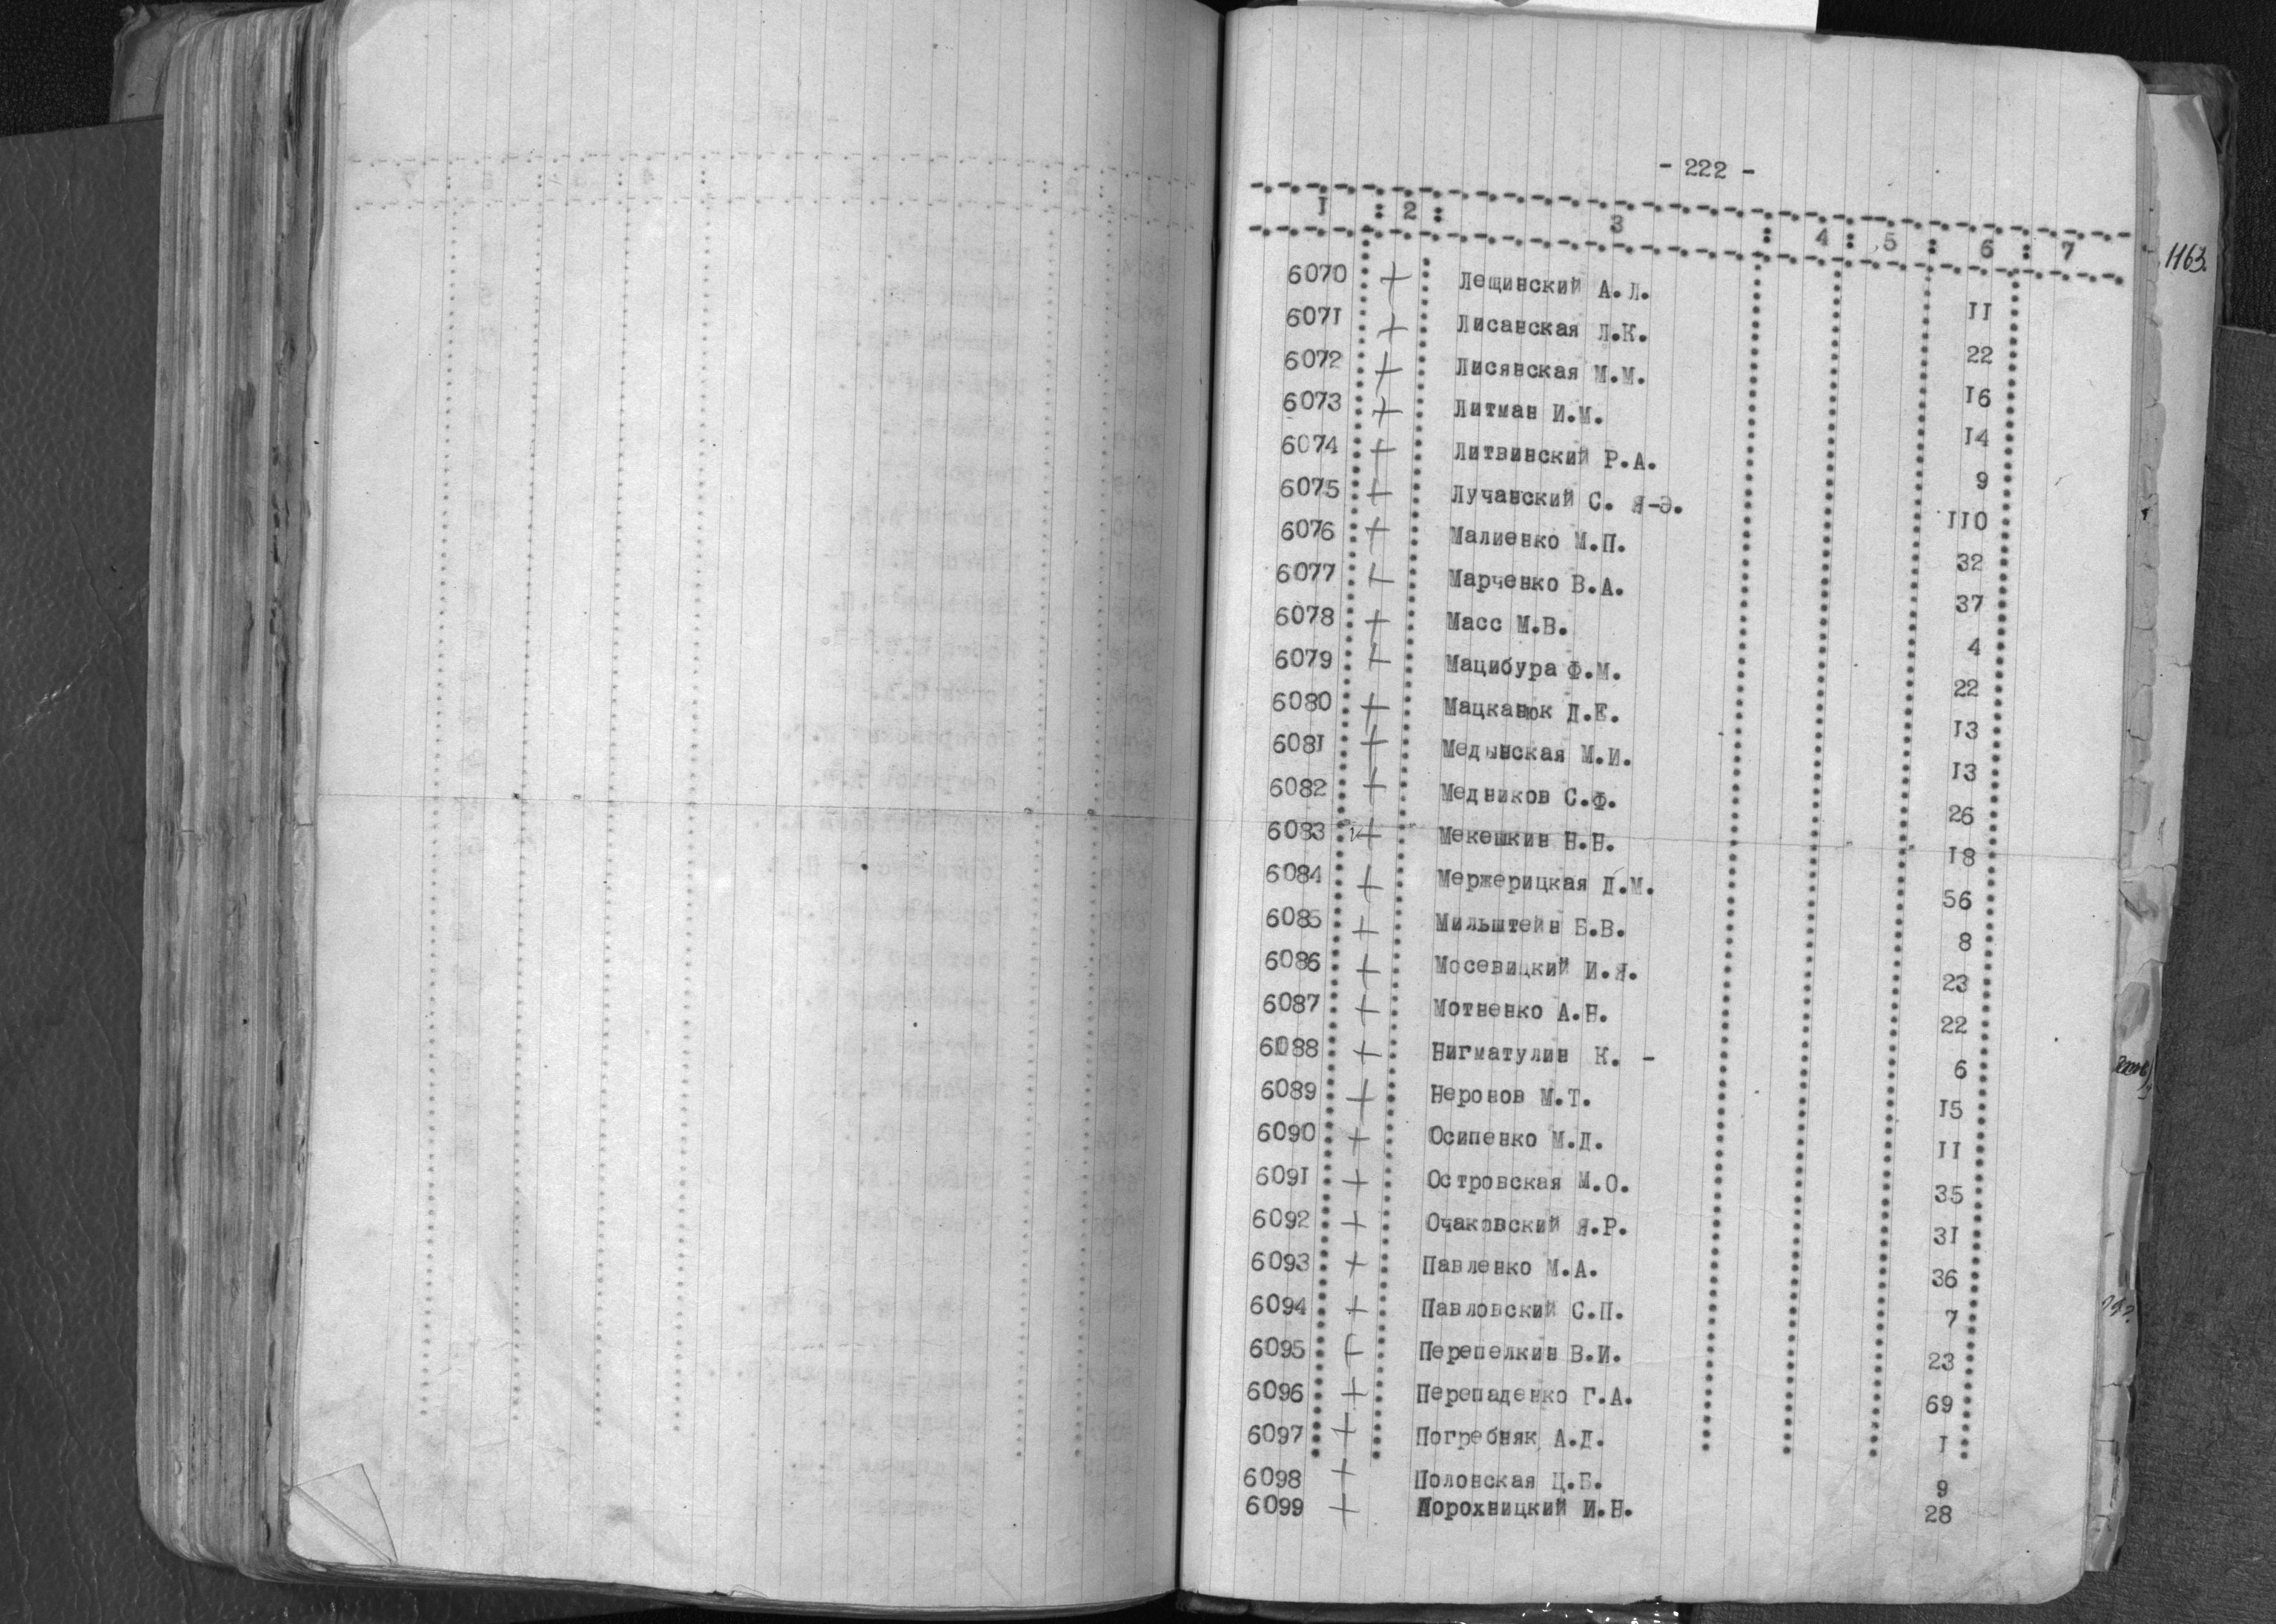 - 222 -
I : 2 : 3 : 4 : 5 : 6 : 7
1163.
6070 + Лещинский А.Л. II
6071 + Лисанская Л.К. 22
6072 + Лисянская М.М. I6
6073 + Литман И.М. I4
6074 + Литвинский Р.А. 9
6075 + Лучанский С. Я-Э. IIO
6076 + Малиенко М.П. 32
6077 + Марченко В.А. 37
6078 + Масс М.В. 4
6079 + Мацибура Ф.М. 22
6080 + Мацканюк Д.Е. I3
608I + Медынская М.И. I3
6082 + Медников С.Ф. 26
6083 + Мекешкин Н.Н. I8
6084 + Мержерицкая Д.М. 56
6085 + Мильштейн Б.В. 8
6086 + Мосевицкий И.Я. 23
6087 + Мотненко А.Н. 22
6088 + Нигматулин К. - 6
6089 + Неронов М.Т. I5
6090 + Осипенко М.Д. II
609I + Островская М.О. 35
6092 + Очаковский Я.Р. 3I
6093 + Павленко М.А. 36
6094 + Павловский С.П. 7
6095 + Перепелкин В.И. 23
6096 + Перепаденко Г.А. 69
6097 + Погребняк А.Д. I
6098 + Половская Ц.Б. 9
6099 + Порохницкий И.Н. 28